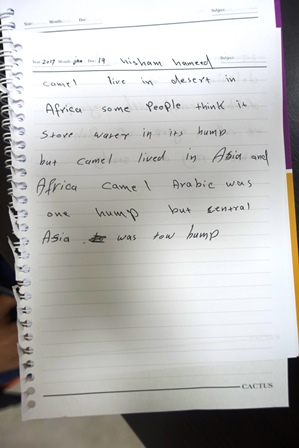 Subject:
Year: Month: Day:
Year 2017 Month: Jan Day: 19 hisham hameed Subject:
camel live in desert in
Africa some People think it
store water in its hump
but camel lived in Asia and
Africa camel Arabic was
one hump but central
Asia was tow hump
CACTUS